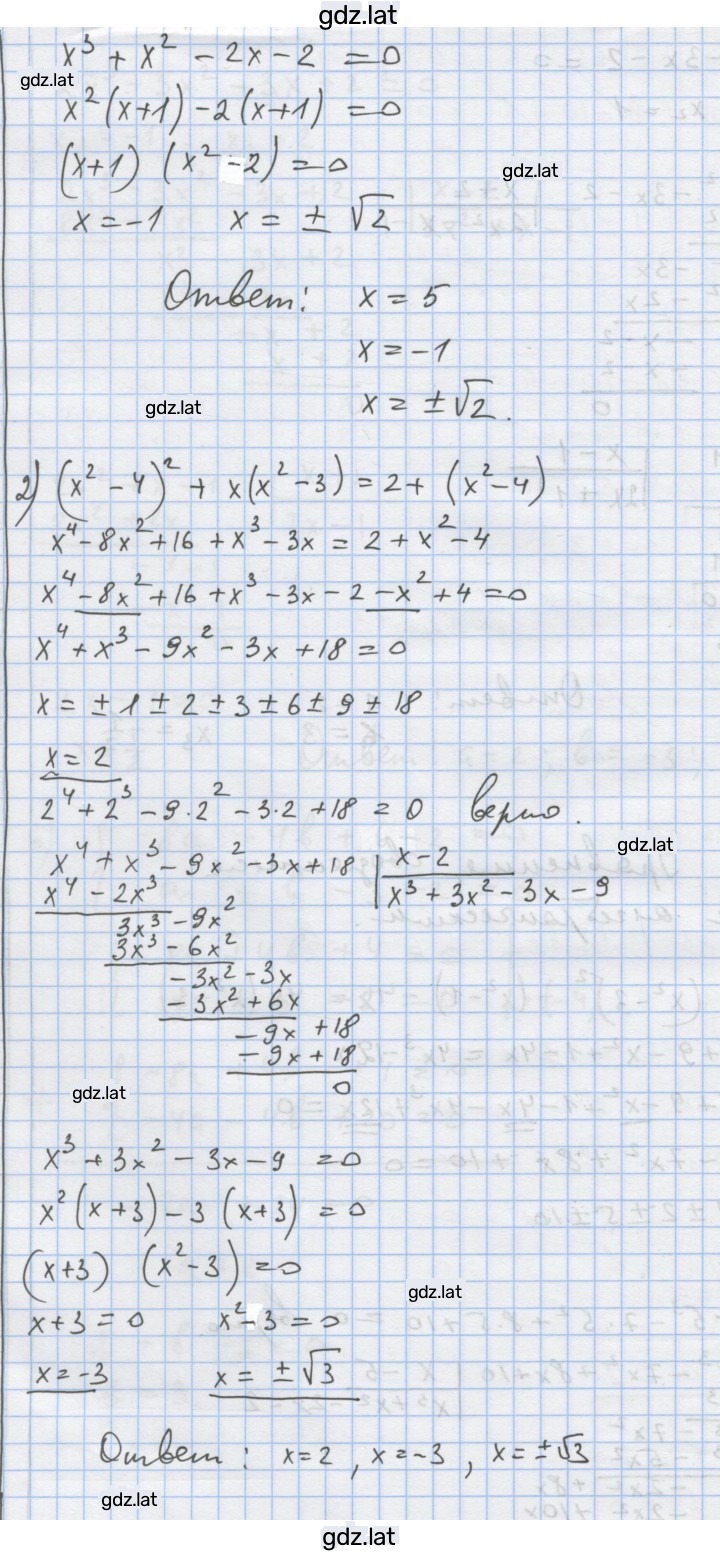 gdz.lat
x³ + x² - 2x - 2 = 0
gdz.lat
x²(x+1) - 2(x+1) = 0
(x+1) (x² - 2) = 0
gdz.lat
x = -1 x = ± √2
Ответ: x = 5
x = -1
gdz.lat
x = ±√2.
2) (x² - 4)² + x(x² - 3) = 2 + (x² - 4)
x⁴ - 8x² + 16 + x³ - 3x = 2 + x² - 4
x⁴ - 8x² + 16 + x³ - 3x - 2 - x² + 4 = 0
x⁴ + x³ - 9x² - 3x + 18 = 0
x = ± 1 ± 2 ± 3 ± 6 ± 9 ± 18
x = 2
2⁴ + 2³ - 9·2² - 3·2 + 18 = 0 верно.
gdz.lat
x⁴ + x³ - 9x² - 3x + 18 | x - 2
x⁴ - 2x³ | x³ + 3x² - 3x - 9
3x³ - 9x²
3x³ - 6x²
- 3x² - 3x
- 3x² + 6x
- 9x + 18
- 9x + 18
0
gdz.lat
x³ + 3x² - 3x - 9 = 0
x²(x+3) - 3(x+3) = 0
(x+3) (x² - 3) = 0
gdz.lat
x + 3 = 0 x² - 3 = 0
x = -3 x = ± √3
Ответ: x = 2, x = -3, x = ±√3
gdz.lat
gdz.lat